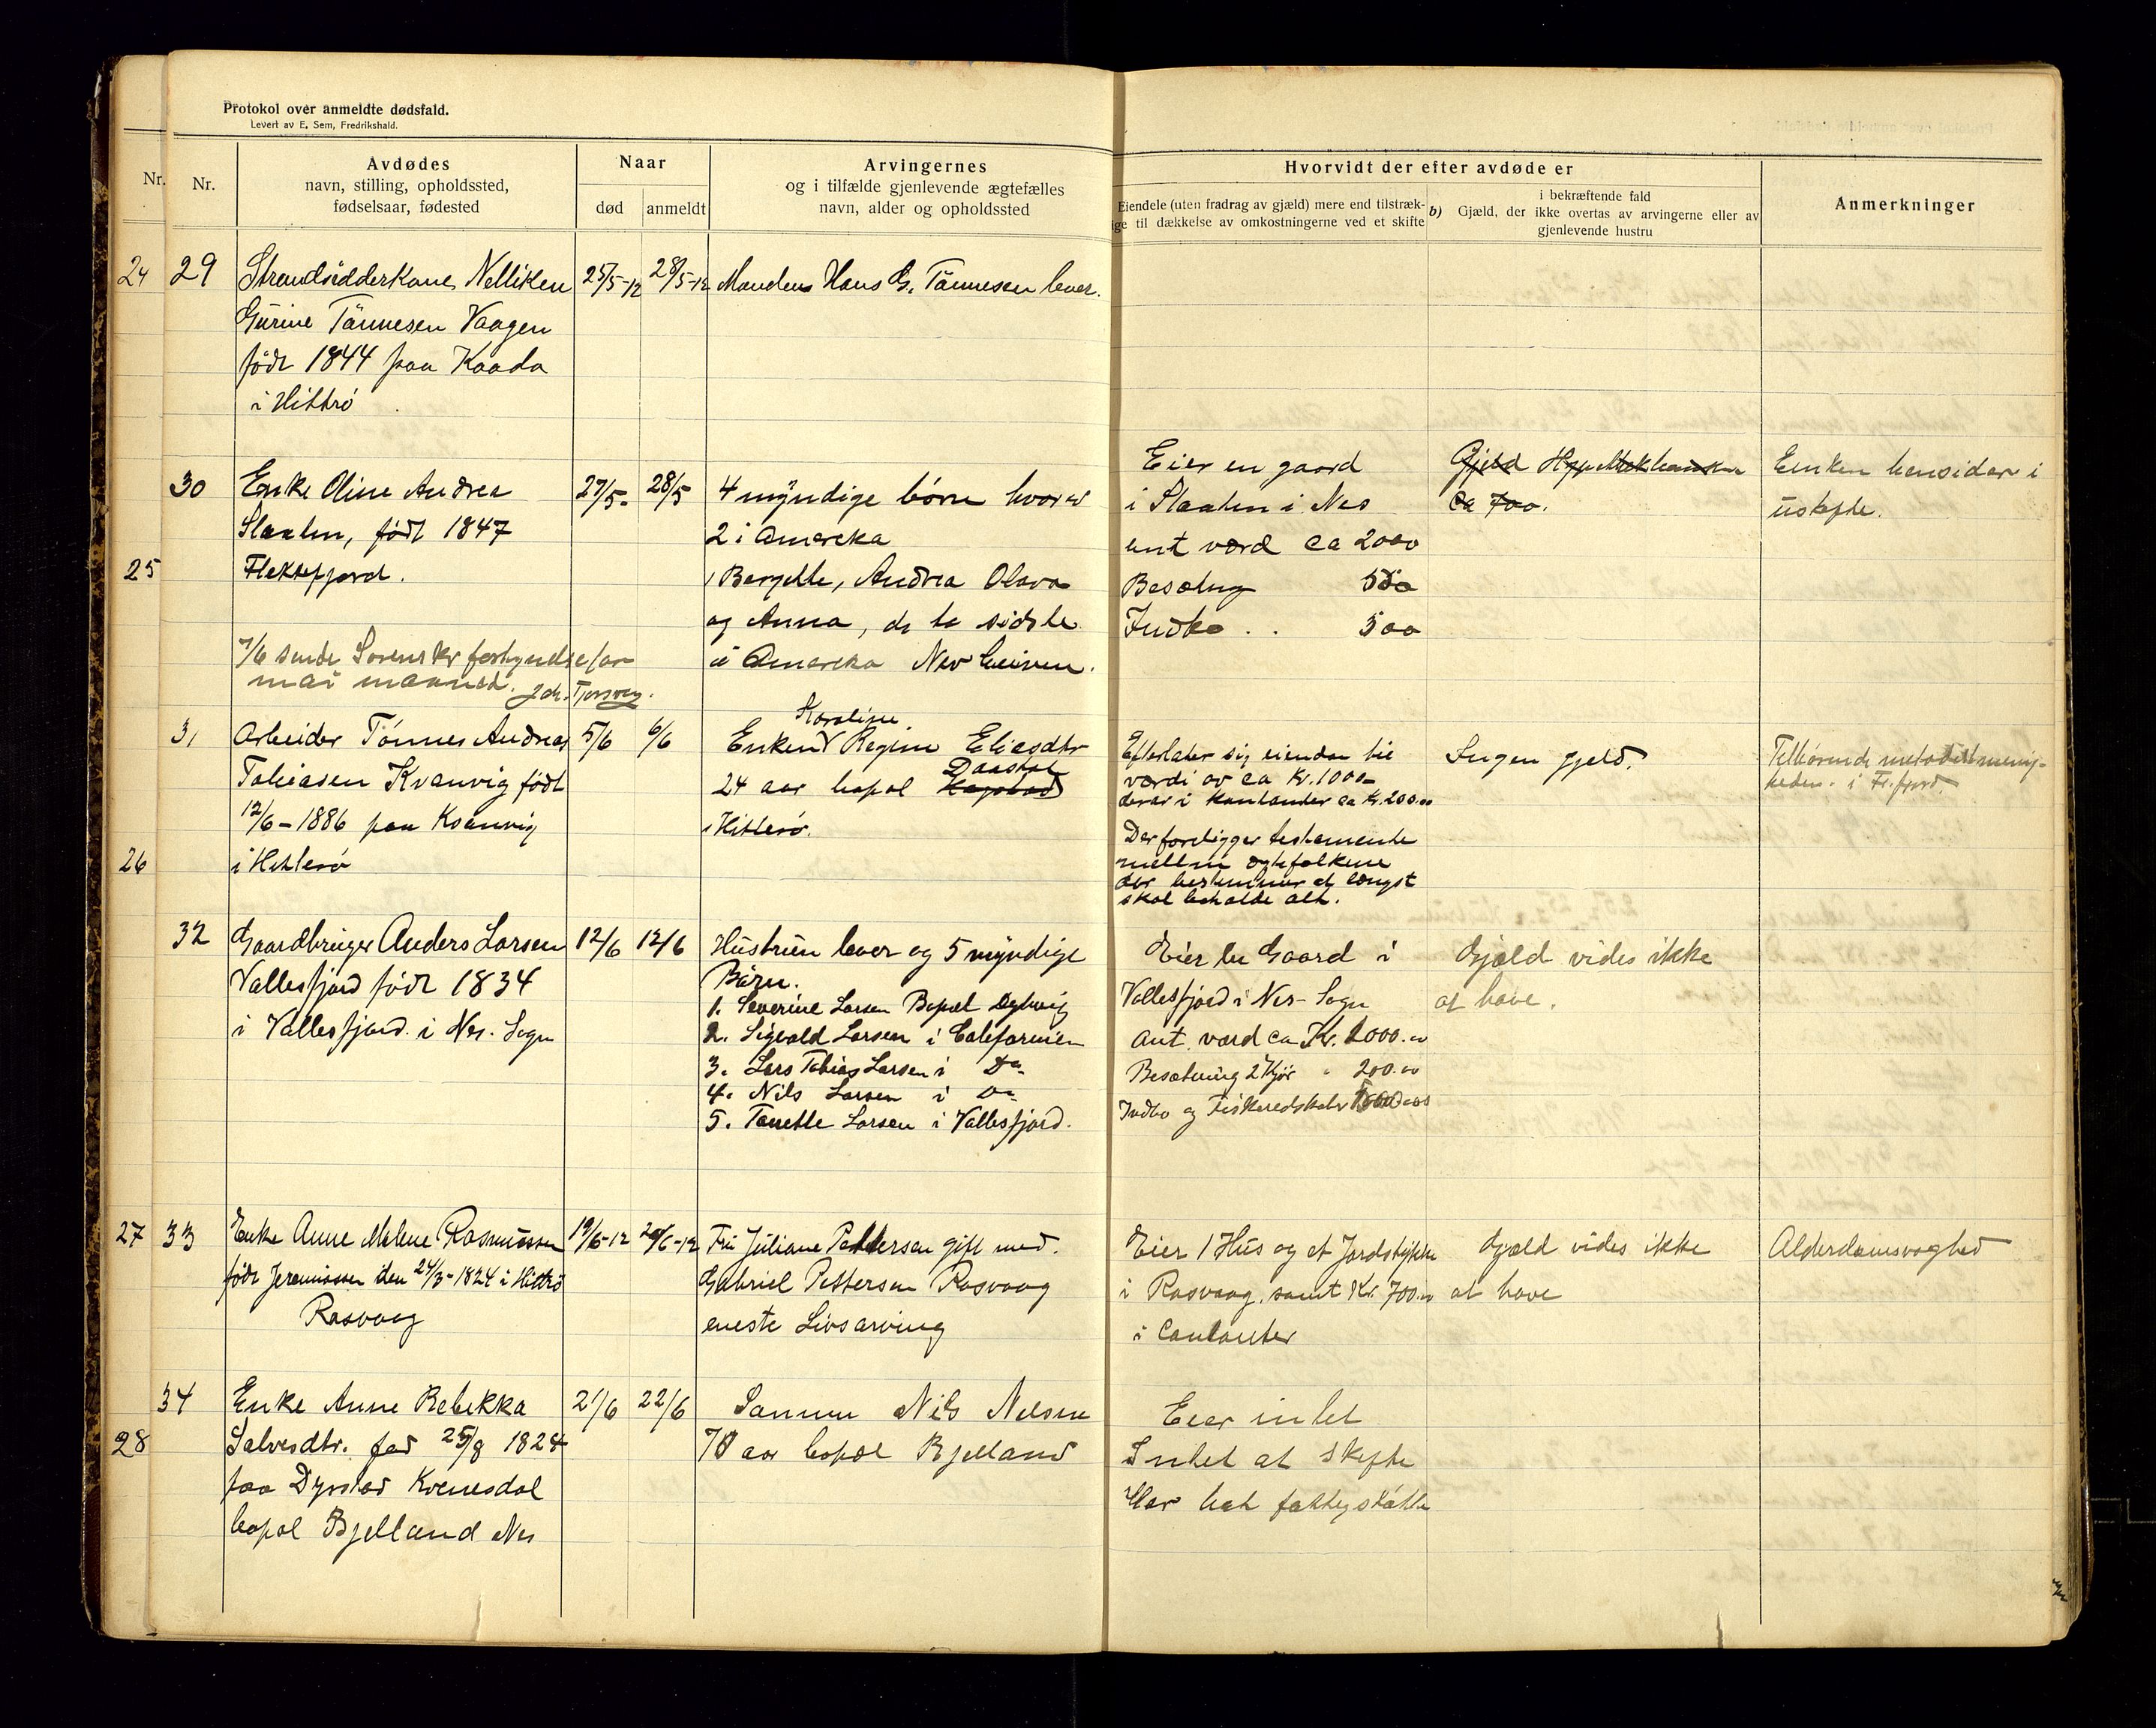 Protokol over anmeldte dødsfald.
Levert av E. Sem, Fredrikshald.
Nr.
Nr.
Avdødes
navn, stilling, opholdssted,
fødselsaar, fødested
Naar
død
anmeldt
Arvingernes
og i tilfælde gjenlevende ægtefælles
navn, alder og opholdssted
Hvorvidt der efter avdøde er
Eiendele (uten fradrag av gjæld) mere end tilstræk-
ige til dækkelse av omkostningerne ved et skifte
b) Gjæld, der
i bekræftende fald
ikke overtas av arvingerne eller av
gjenlevende hustru
Anmerkninger
24
29
Strandsidderkone Nelliken
Gurine Tønnesen Vaagen
född 1844 paa Kaada
i Hitterö
25/5-12
28/5-12
Manden Hans G. Tønnesen lever.
25
30
Enke Oline Andrea
Staalen, født 1847
Flekkefjord.
27/5-
28/5
4 myndige børn hvorav
2 i Amereka
Bergitte, Andrea Olava
og Anna, de to sidste
i Amereka
Eier en gaard
i Staalen i Nes
ant værd ca 2000
Besetng 500
Indbo . . 500
Gjeld
ca 700.
Enken hensidder i
uskifte.
7/6 sendt Sorenskr
mai maaned. Joh. Tjorsvaag.
26
31
Arbeider Tönnes Andreas
Tobiasen Kvanvig född
12/6-1886 paa Kvanvig
i Hitterö
5/6
6/6
Karoline
Enken Regine Eliasdtr
24 aar bopæl
i Hitterö.
Efterlater sig eiendom til
værdi av ca kr. 1000-
derav i kontanter ca kr. 200.00
Der foreligger testamente
mellem egtefolkene
der bestemmer at længst
skal beholde alt.
Ingen gjeld.
Tilhørende metodistmenig-
heden. i Fl.fjord.
32
Gaardbruger Anders Larsen
Vallesfjord född 1834
i Vallesfjord. i Nes. Sogn
12/6
12/6
Hustruen lever og 5 myndige
Börn.
1. Severine Larsen Bopæl
2. Sigvald Larsen i Californien
3. Lars Tobias Larsen i Do
4. Nils Larsen i Do
5. Tonette Larsen i Vallesfjord.
Eier en Gaard i
Vallesfjord i Nes- Sogn
Ant. værd ca Kr. 2000.00
Besætning 2 Kjör " 200.00
Indbo og Fiskeredskaber
Gjæld vides ikke
at have.
27
33
Enke Anne Malene Rasmussen
född Jeremiassen den 24/3-1824 i Hitterö
Rasvaag
19/6-12
20/6-12
Fru Juliane Pettersen gift med.
Gabriel Pettersen Rasvaag
eneste Livsarving
Eier 1 Hus og et Jordstykke
i Rasvaag, samt Kr. 700.00
i Contanter
Gjæld vides ikke
at have
Alderdomsvaghed
28
34
Enke Anne Rebekka
Salvesdtr. fød 25/8 1824
paa Dyrstad Kvenesdal
bopæl Bjelland Nes
21/6
22/6
Sønnen Nils Nelsen
70 aar bopæl Bjelland
Eier intet
Intet at skifte
Har hat fattigstötte